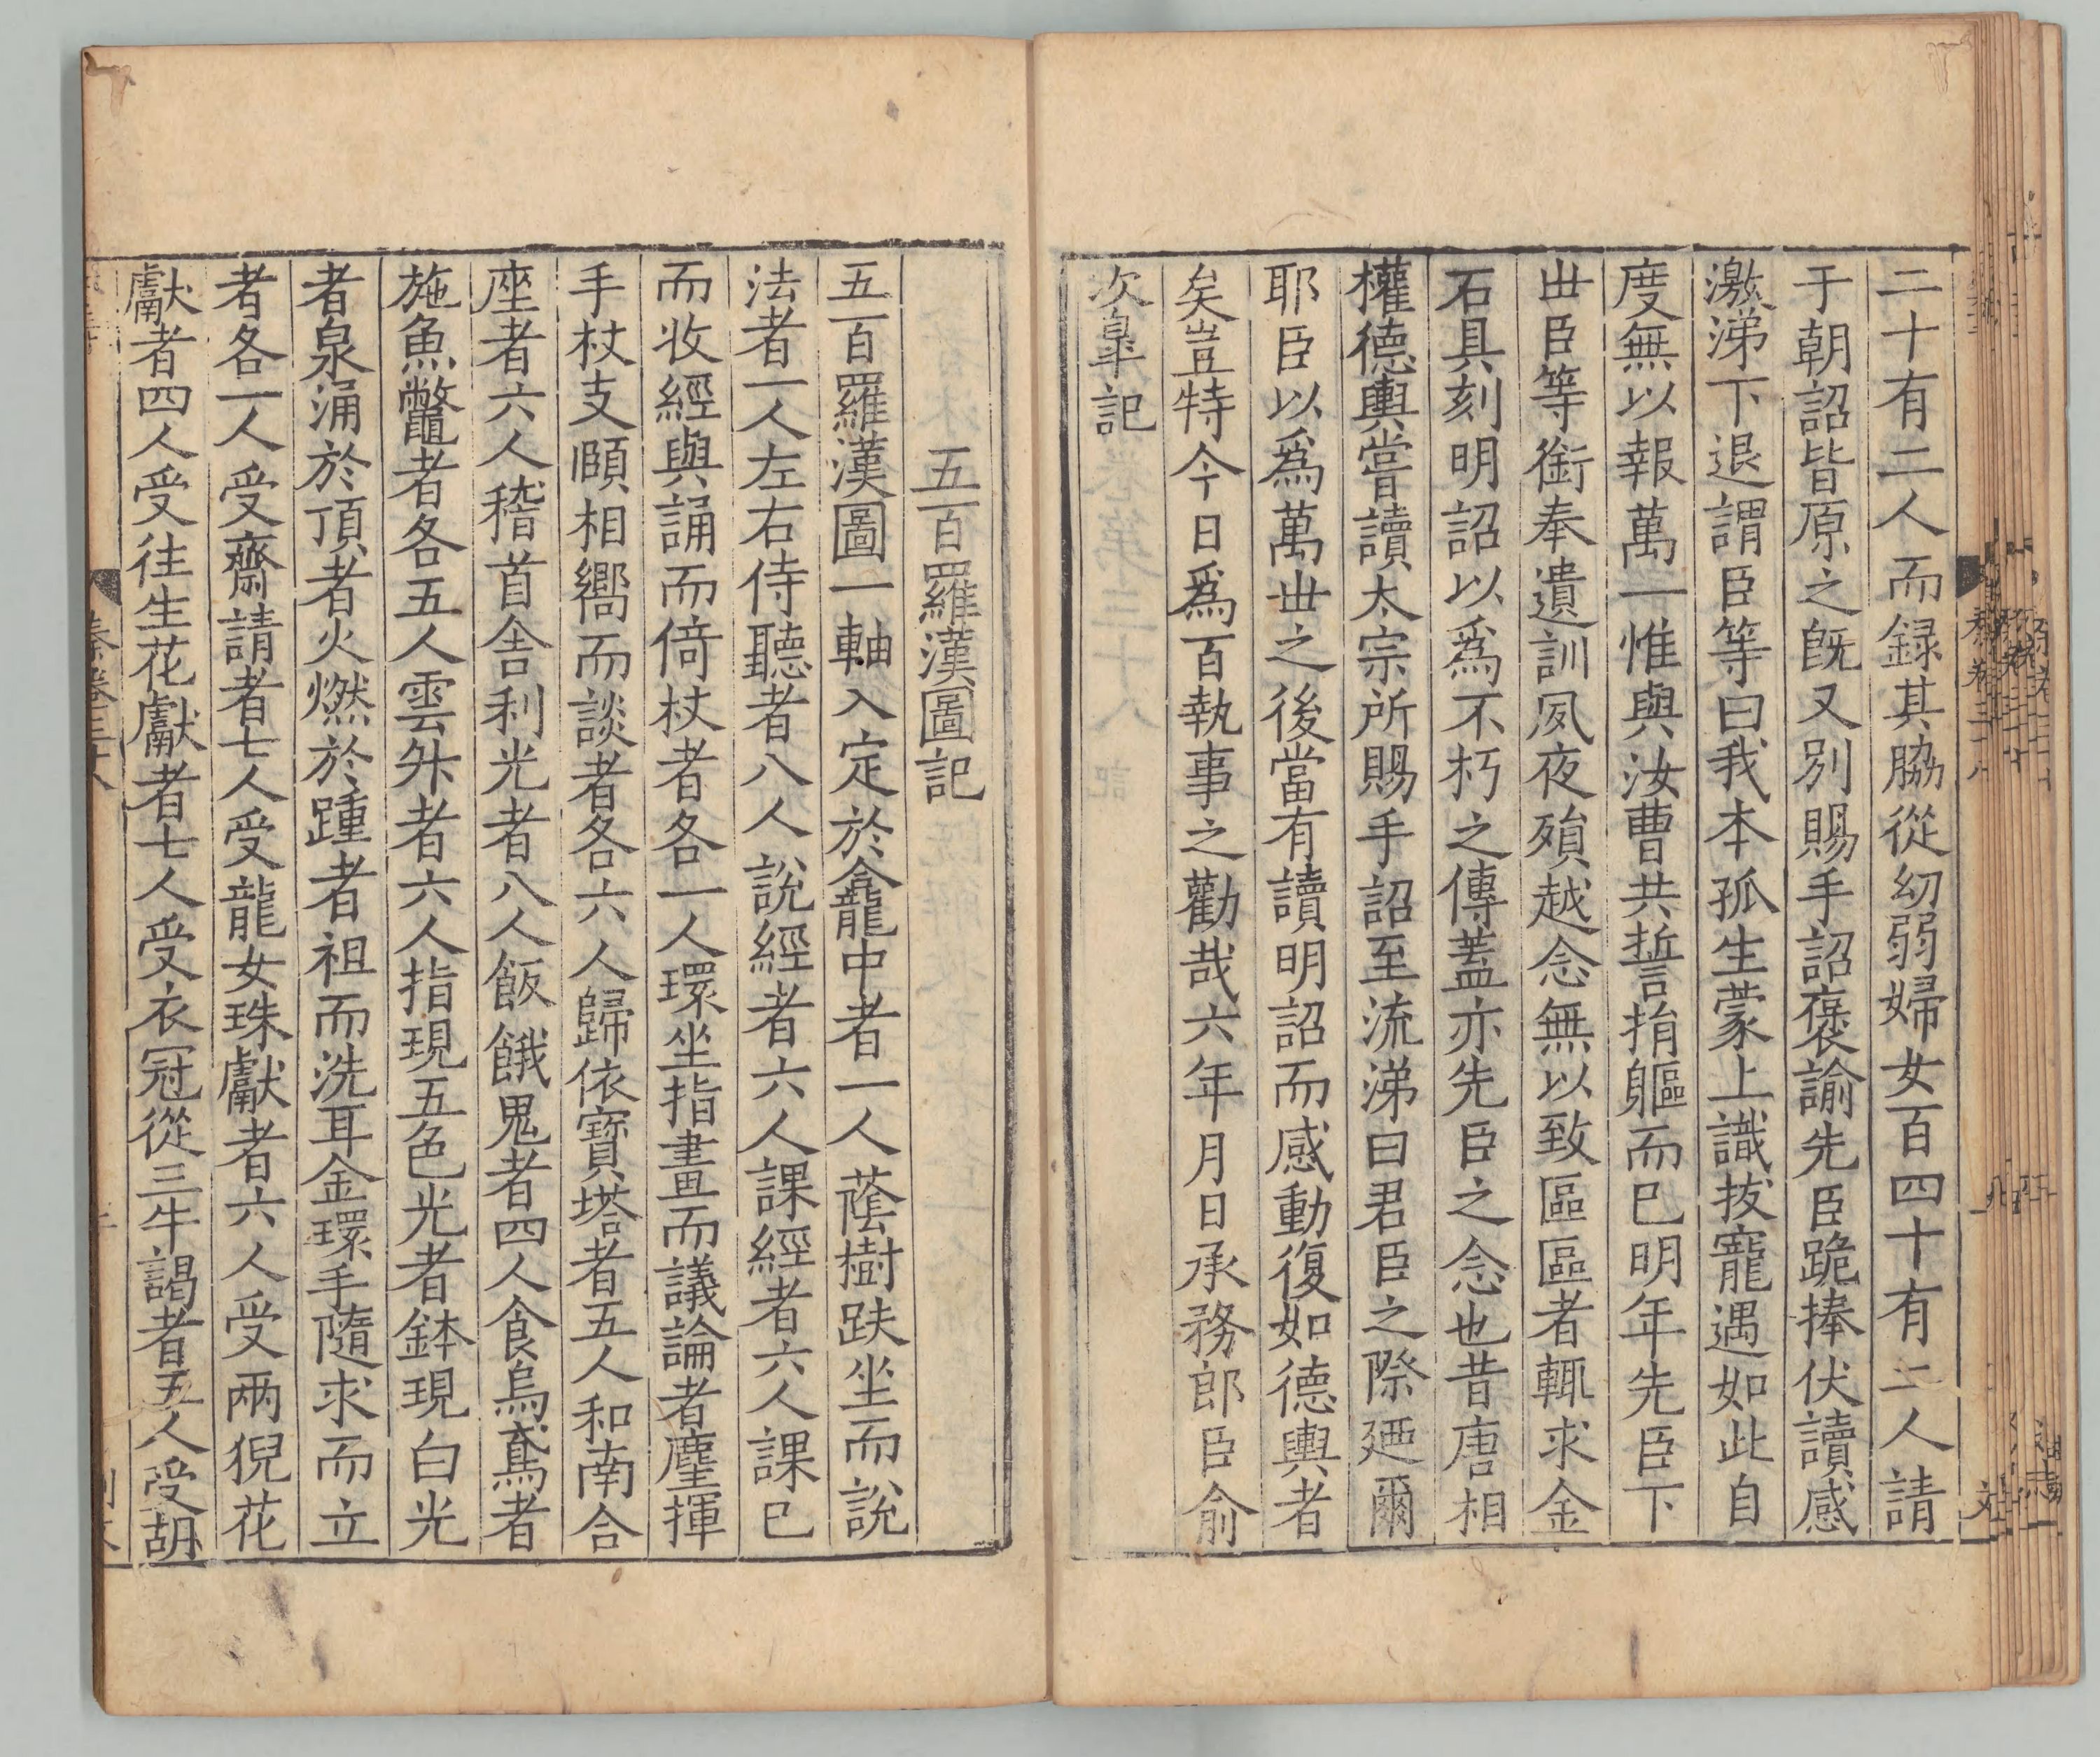 二十有二人而録其脇從幼弱婦女百四十有二人請
于朝詔皆原之旣又別賜手詔褒諭先臣跪捧伏讀感
激涕下退謂臣等曰我本孤生蒙上識拔寵遇如此自
度無以報萬一惟與汝曹共誓捐軀而已明年先臣下
丗臣等銜奉遺訓夙夜殞越念無以致區區者輒求金
石具刻明詔以爲不朽之傳蓋亦先臣之念也昔唐相
權德輿嘗讀太宗所賜手詔至流涕曰君臣之際廼爾
耶臣以爲萬丗之後當有讀明詔而感動復如德輿者
矣豈特今日爲百執事之勸哉六年月日承務郎臣俞
次皐記
五百羅漢圖記
五百羅漢圖一軸入定於龕中者一人蔭樹趺坐而說
法者一人左右侍聽者八人說經者六人課經者六人課已
而收經與誦而倚杖者各一人環坐指畫而議論者麈揮
手杖支頤相嚮而談者各六人歸依寶塔者五人和南合
座者六人稽首舍利光者八人飯餓鬼者四人食烏鳶者
施魚鼈者各五人雲舛者六人指現五色光者鉢現白光
者泉涌於頂者火燃於踵者袒而洗耳金環手隨求而立
者各一人受齋請者七人受龍女珠獻者六人受两猊花
獻者四人受往生花獻者七人受衣冠從三牛謁者五人受胡